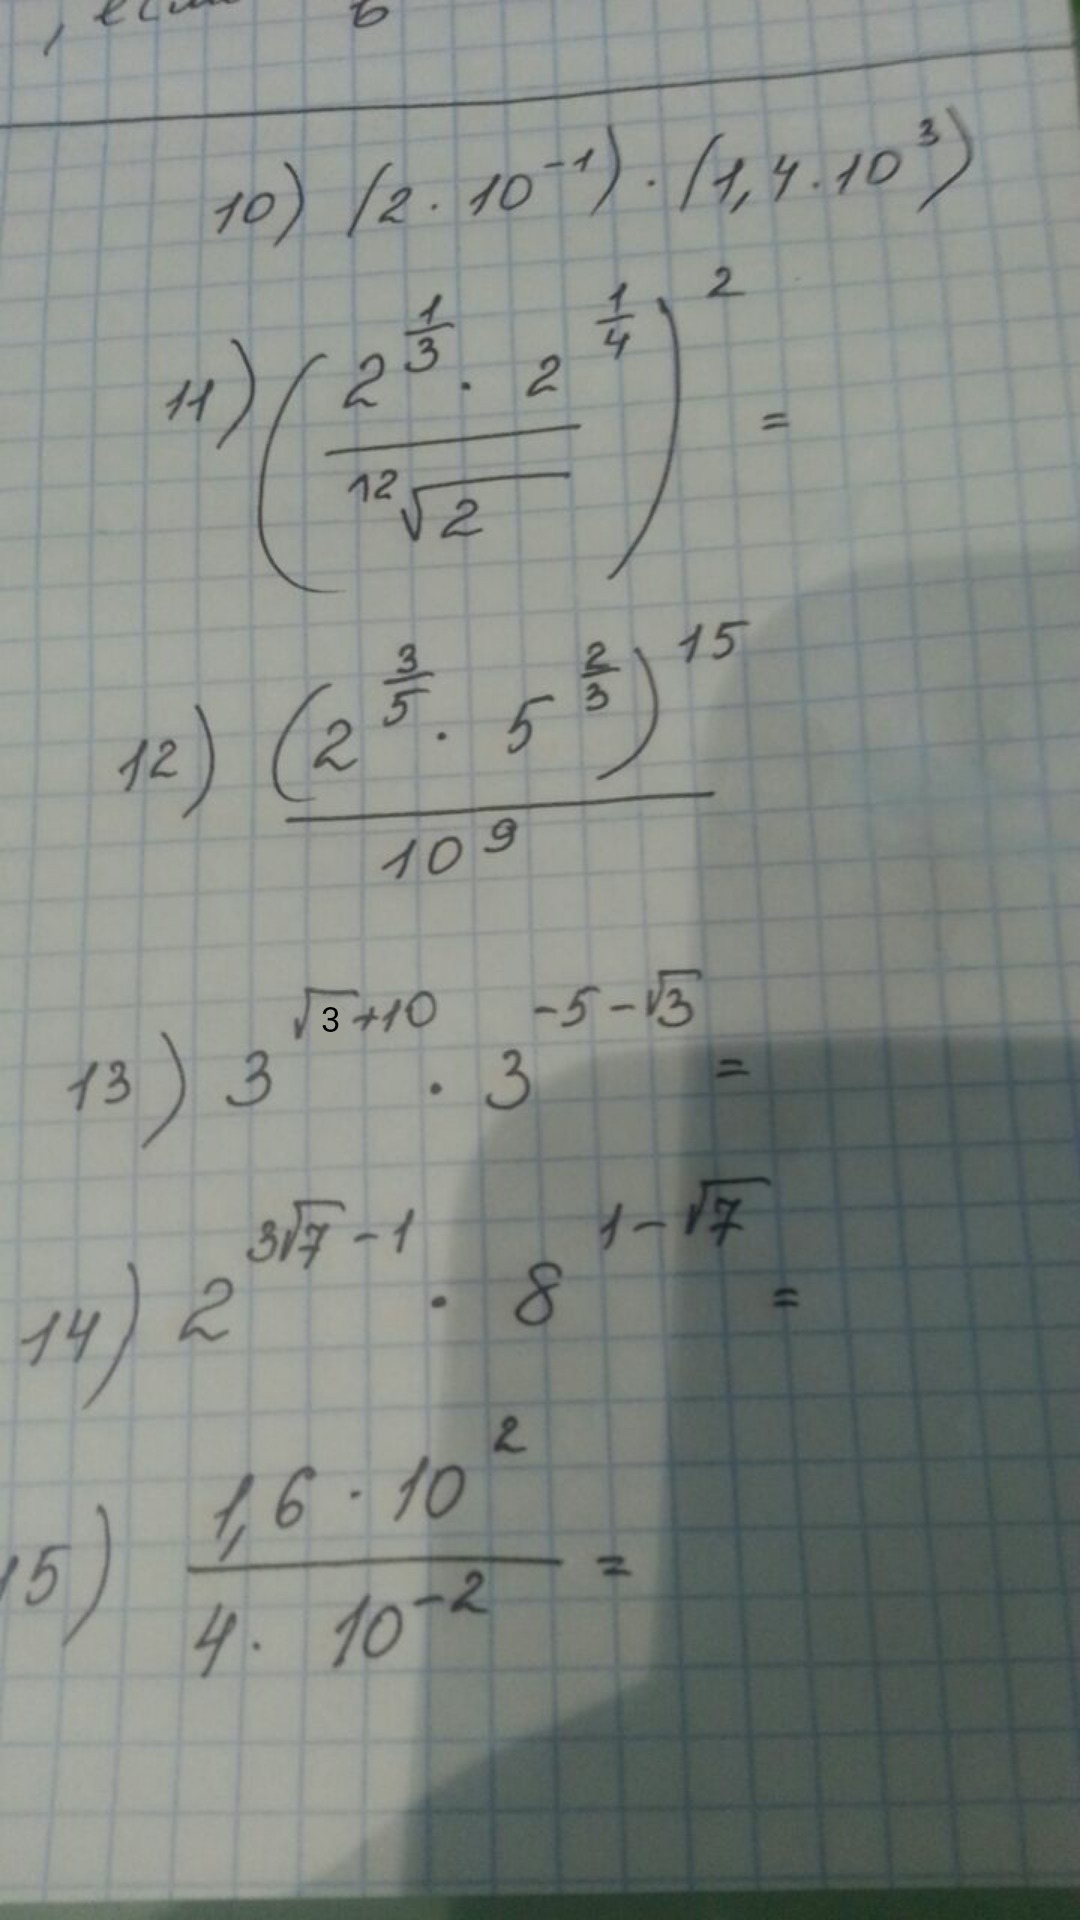 , если в
10) (2 · 10⁻¹) · (1,4 · 10³)
11) (2^(1/3) · 2^(1/4) / ¹²√2)² =
12) (2^(3/5) · 5^(2/3))¹⁵ / 10⁹
13) 3^(√3+10) · 3^(-5-√3) =
14) 2^(3√7-1) · 8^(1-√7) =
15) 1,6 · 10² / 4 · 10⁻² =